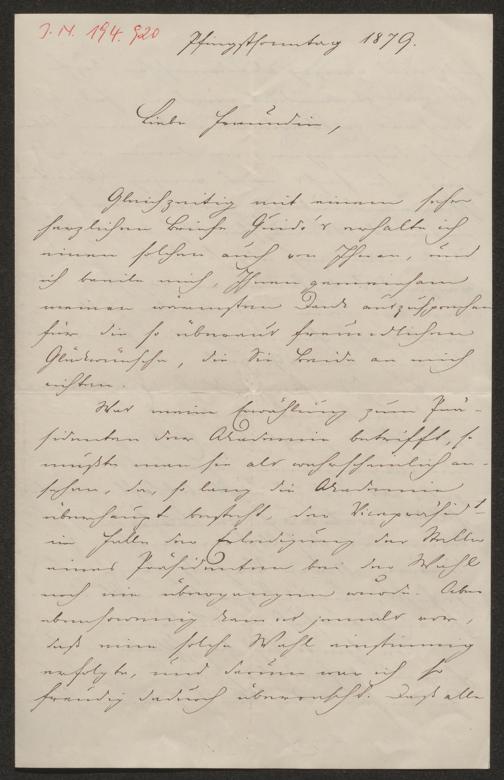 J. N. 194.920
Pfingstsonntag 1879.
Liebe Freundin,
Gleichzeitig mit einem sehr
herzlichen Briefe Guido's erhalte ich
einen solchen auch von Ihnen, und
ich beeile mich, Ihnen gemeinsam
meinen wärmsten Dank auszusprechen
für die so überaus freundlichen
Glückwünsche, die Sie beide an mich
richten.
Was meine Erwählung zum Prä-
sidenten der Akademie betrifft, so
mußte man sie als wahrscheinlich an-
sehen, da, so lang die Akademie
überhaupt besteht, der Vicepräsid-t
im Falle der Erledigung der Stelle
eines Präsidenten bei der Wahl
noch nie übergangen wurde. Aber
ebensowenig kam es jemals vor,
daß eine solche Wahl einstimmig
erfolgte, und darum war ich so
freudig dadurch überrascht. Daß alle